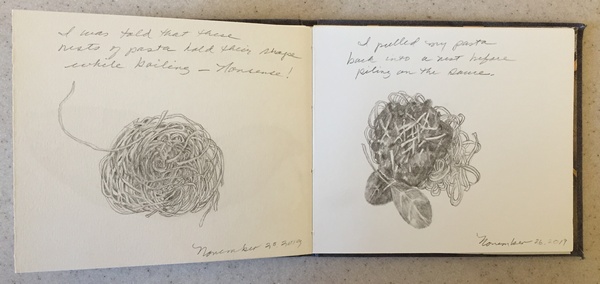 I was told that these
nests of pasta hold their shape
while boiling – Nonsense!
November 25 2019
I pulled my pasta
back into a nest before
piling on the sauce.
November 26, 2019